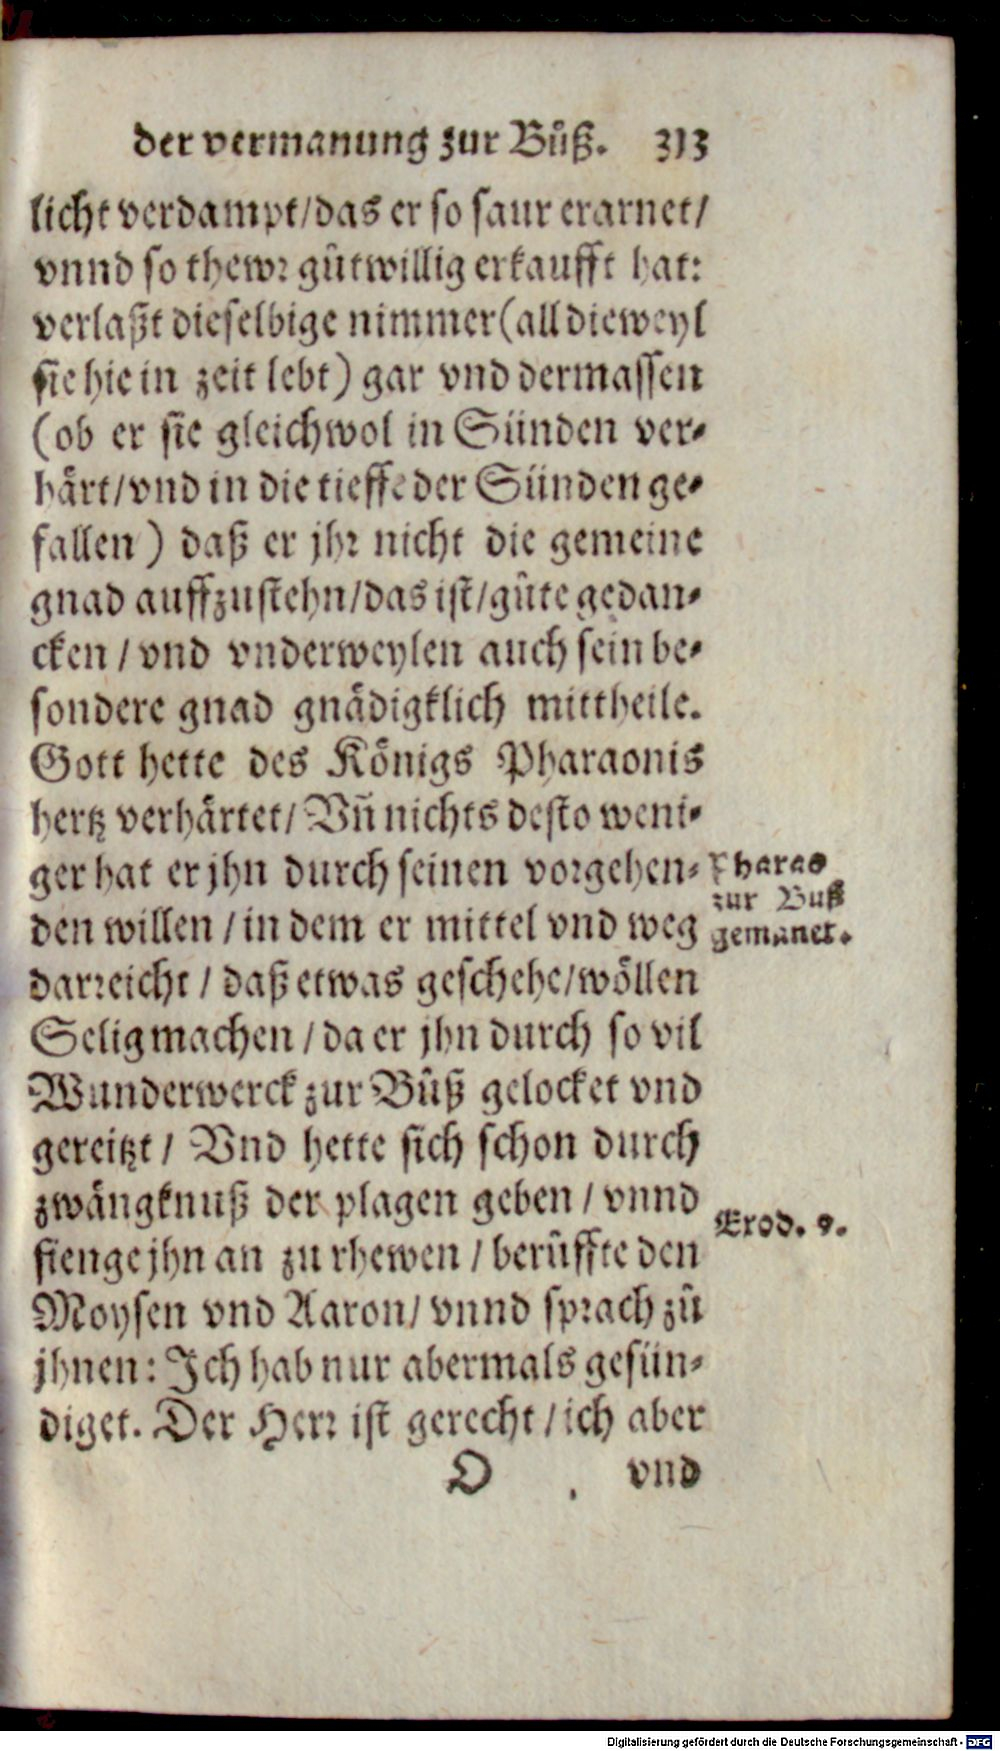 der vermanung zur Bůß. 313
licht verdampt/das er so saur erarnet/
vnnd so thewr gůtwillig erkaufft hat:
verlaßt dieselbige nimmer (all dieweyl
sie hie in zeit lebt) gar vnd dermassen
(ob er sie gleichwol in Sünden ver-
härt/vnd in die tieffe der Sünden ge-
fallen) daß er jhr nicht die gemeine
gnad auffzustehn/das ist/gůte gedan-
cken/vnd vnderweylen auch sein be-
sondere gnad gnädigklich mittheile.
Gott hette des Königs Pharaonis
hertz verhärtet/Vñ nichts desto weni-
ger hat er jhn durch seinen vorgehen-
den willen/in dem er mittel vnd weg
darreicht/daß etwas geschehe/wöllen
Selig machen/da er jhn durch so vil
Wunderwerck zur Bůß gelocket vnd
gereitzt/Vnd hette sich schon durch
zwängknuß der plagen geben/vnnd
fienge jhn an zu rhewen/berůffte den
Moysen vnd Aaron/vnnd sprach zů
jhnen: Ich hab nur abermals gesün-
diget. Der Herr ist gerecht/ich aber
O vnd
Pharao
zur Buß
gemanet.
Exod. 9.
Digitalisierung gefördert durch die Deutsche Forschungsgemeinschaft - DFG